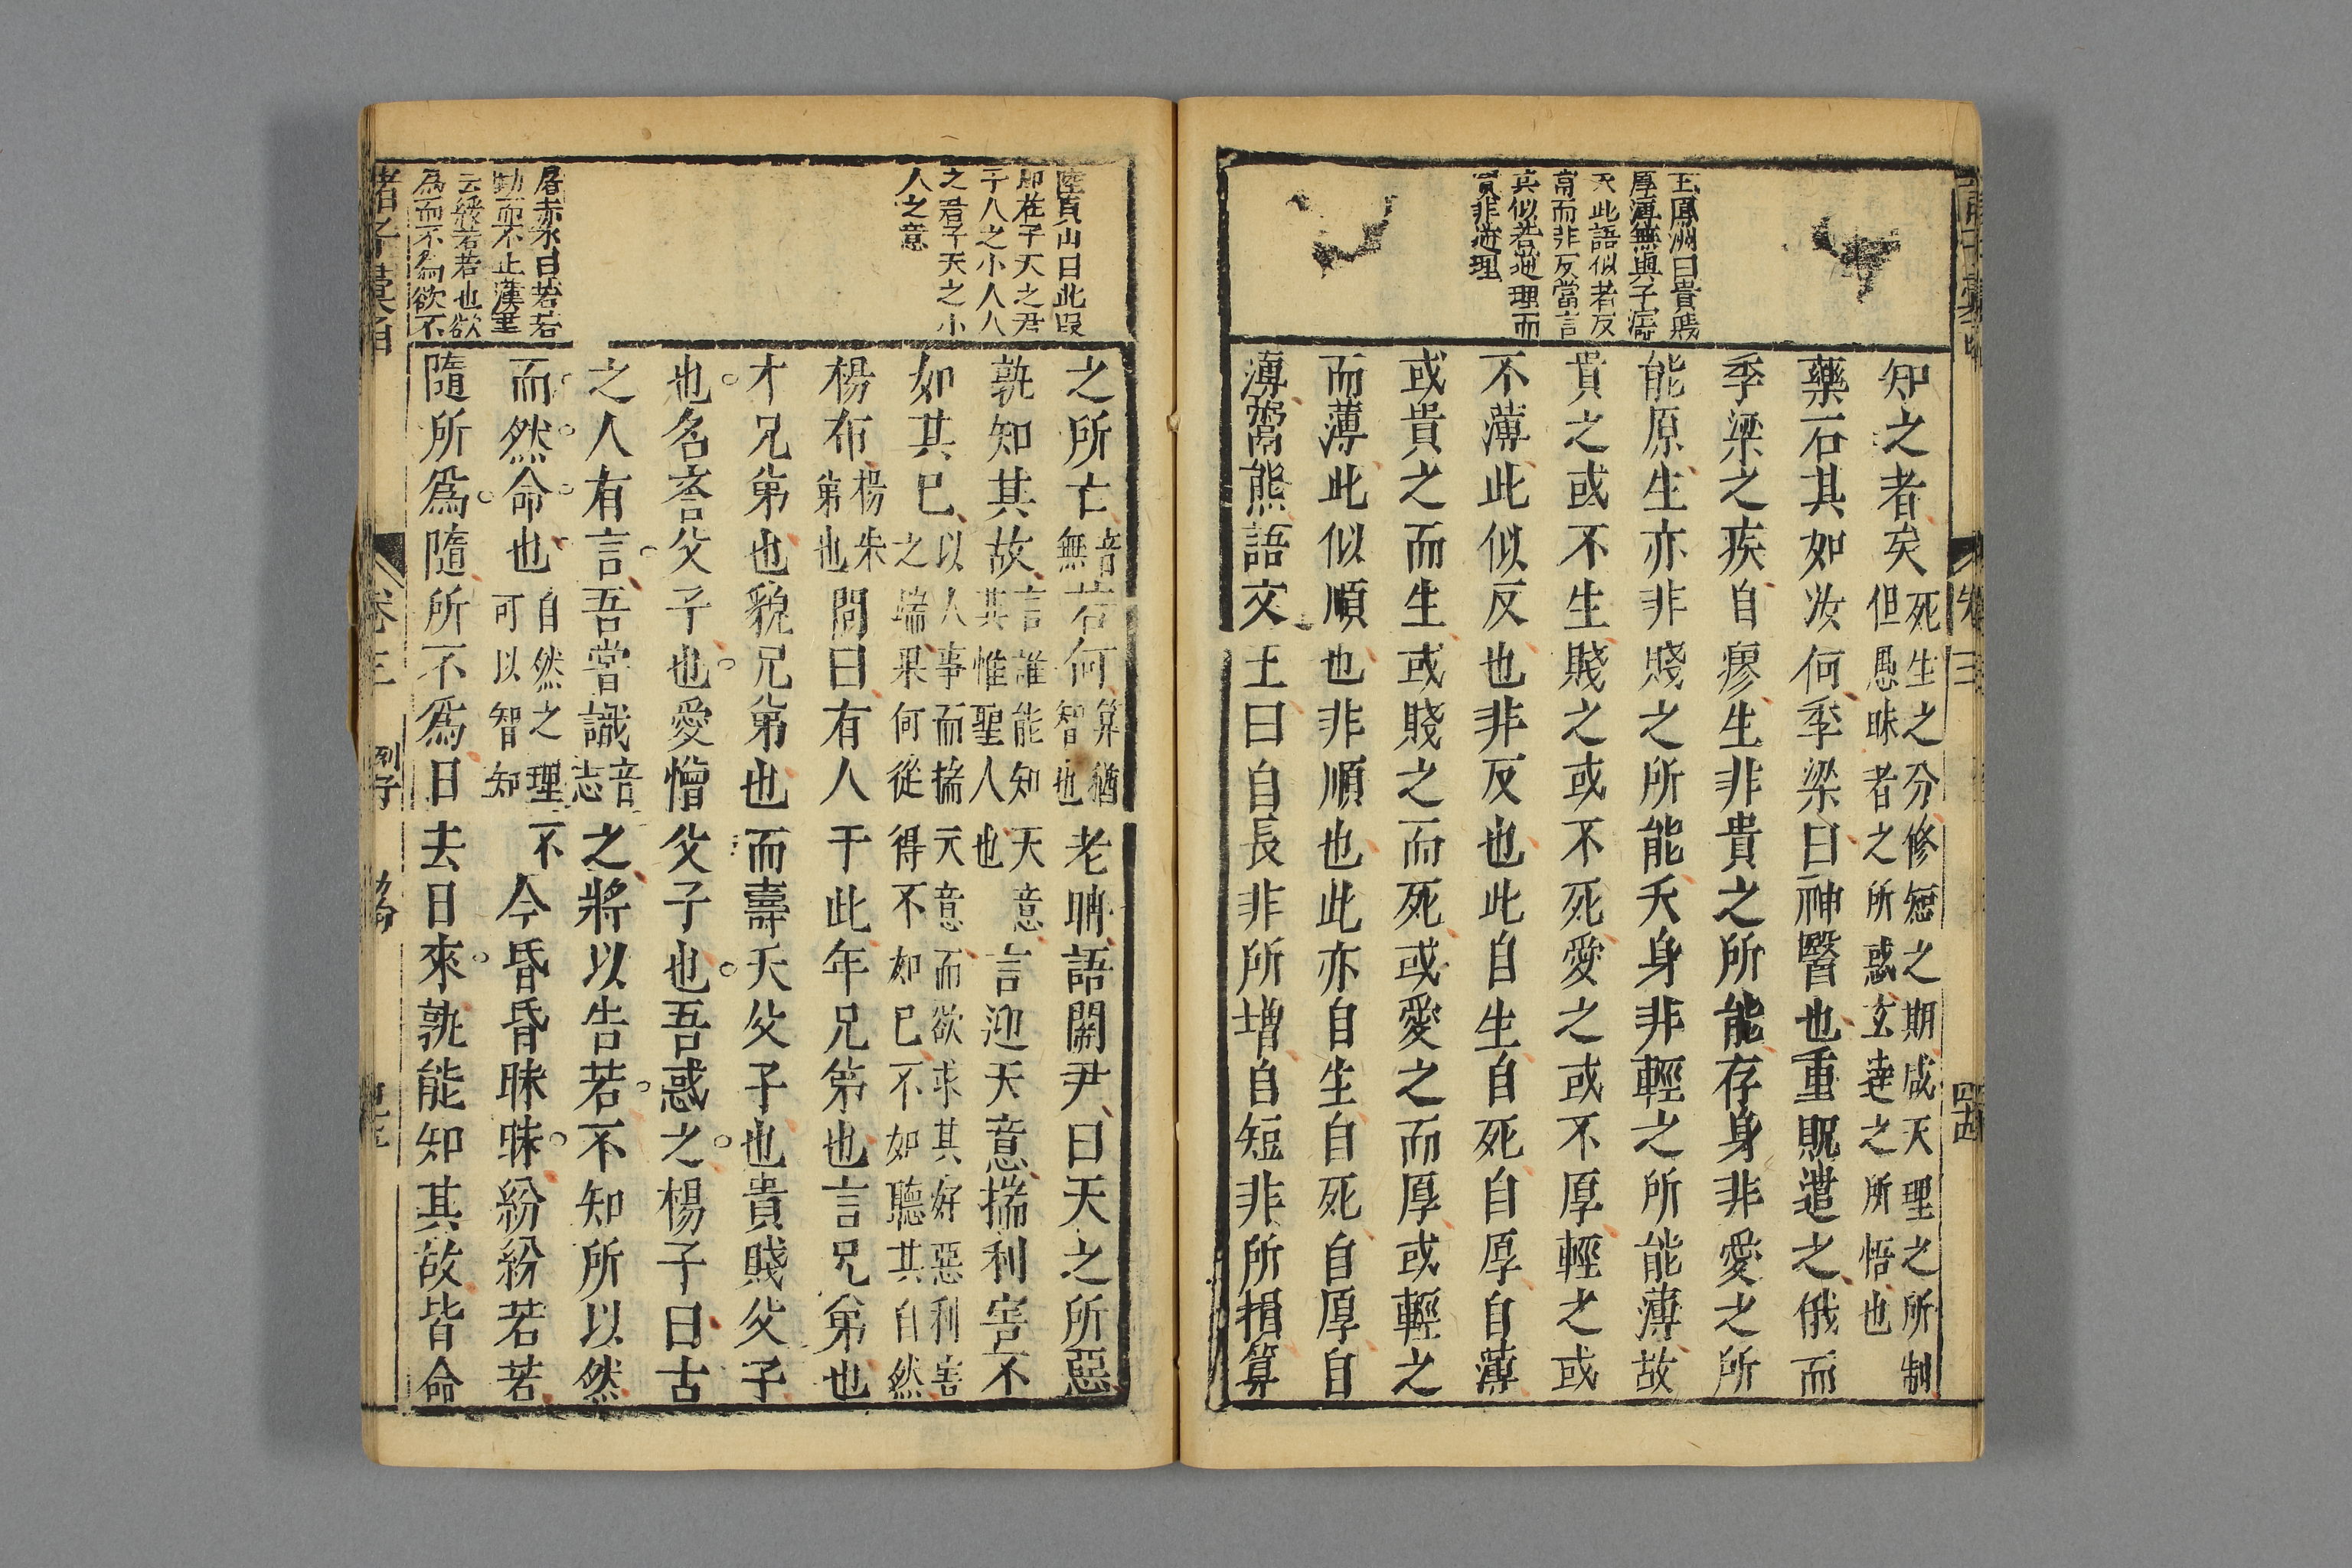 王鳳洲曰貴賤
厚薄無與子寤
天此語似若反
常而非反當言
其似若進理而
實非進理
知之者矣死生之分修短之期咸天理之所制
但愚昧者之所惑玄達之所悟也
藥石其如汝何季梁曰神醫也重貺遣之俄而
季梁之疾自瘳生非貴之所能存身非愛之所
能原生亦非賤之所能夭身非輕之所能薄故
貴之或不生賤之或不死愛之或不厚輕之或
不薄此似反也非反也此自生自死自厚自薄
或貴之而生或賤之而死或愛之而厚或輕之
而薄此似順也非順也此亦自生自死自厚自
薄鬻熊語文王曰自長非所增自短非所損算
卷三
陸貞山曰此叚
即在子天之君
子人之小人人
之君子天之小
人之意
屠赤水曰若若
動而不止漢書
云綬若若也欲
爲而不爲欲不
之所亡音無若何算猶智也老聃語關尹曰天之所惡
孰知其故言誰能知天意其惟聖人也言迎天意揣利害不
如其已以人事而揣天意而欲求其好惡利害
之端果何從得不如已不如聽其自然
楊布楊朱弟也問曰有人于此年兄弟也言兄弟也
才兄弟也貌兄弟也而壽夭父子也貴賤父子
也名譽父子也愛憎父子也吾惑之楊子曰古
之人有言吾嘗識音志之將以告若不知所以然
而然命也自然之理不可以智知今昏昏昧昧紛紛若若
隨所爲隨所不爲日去日來孰能知其故皆命
諸子彙函
卷三
列子